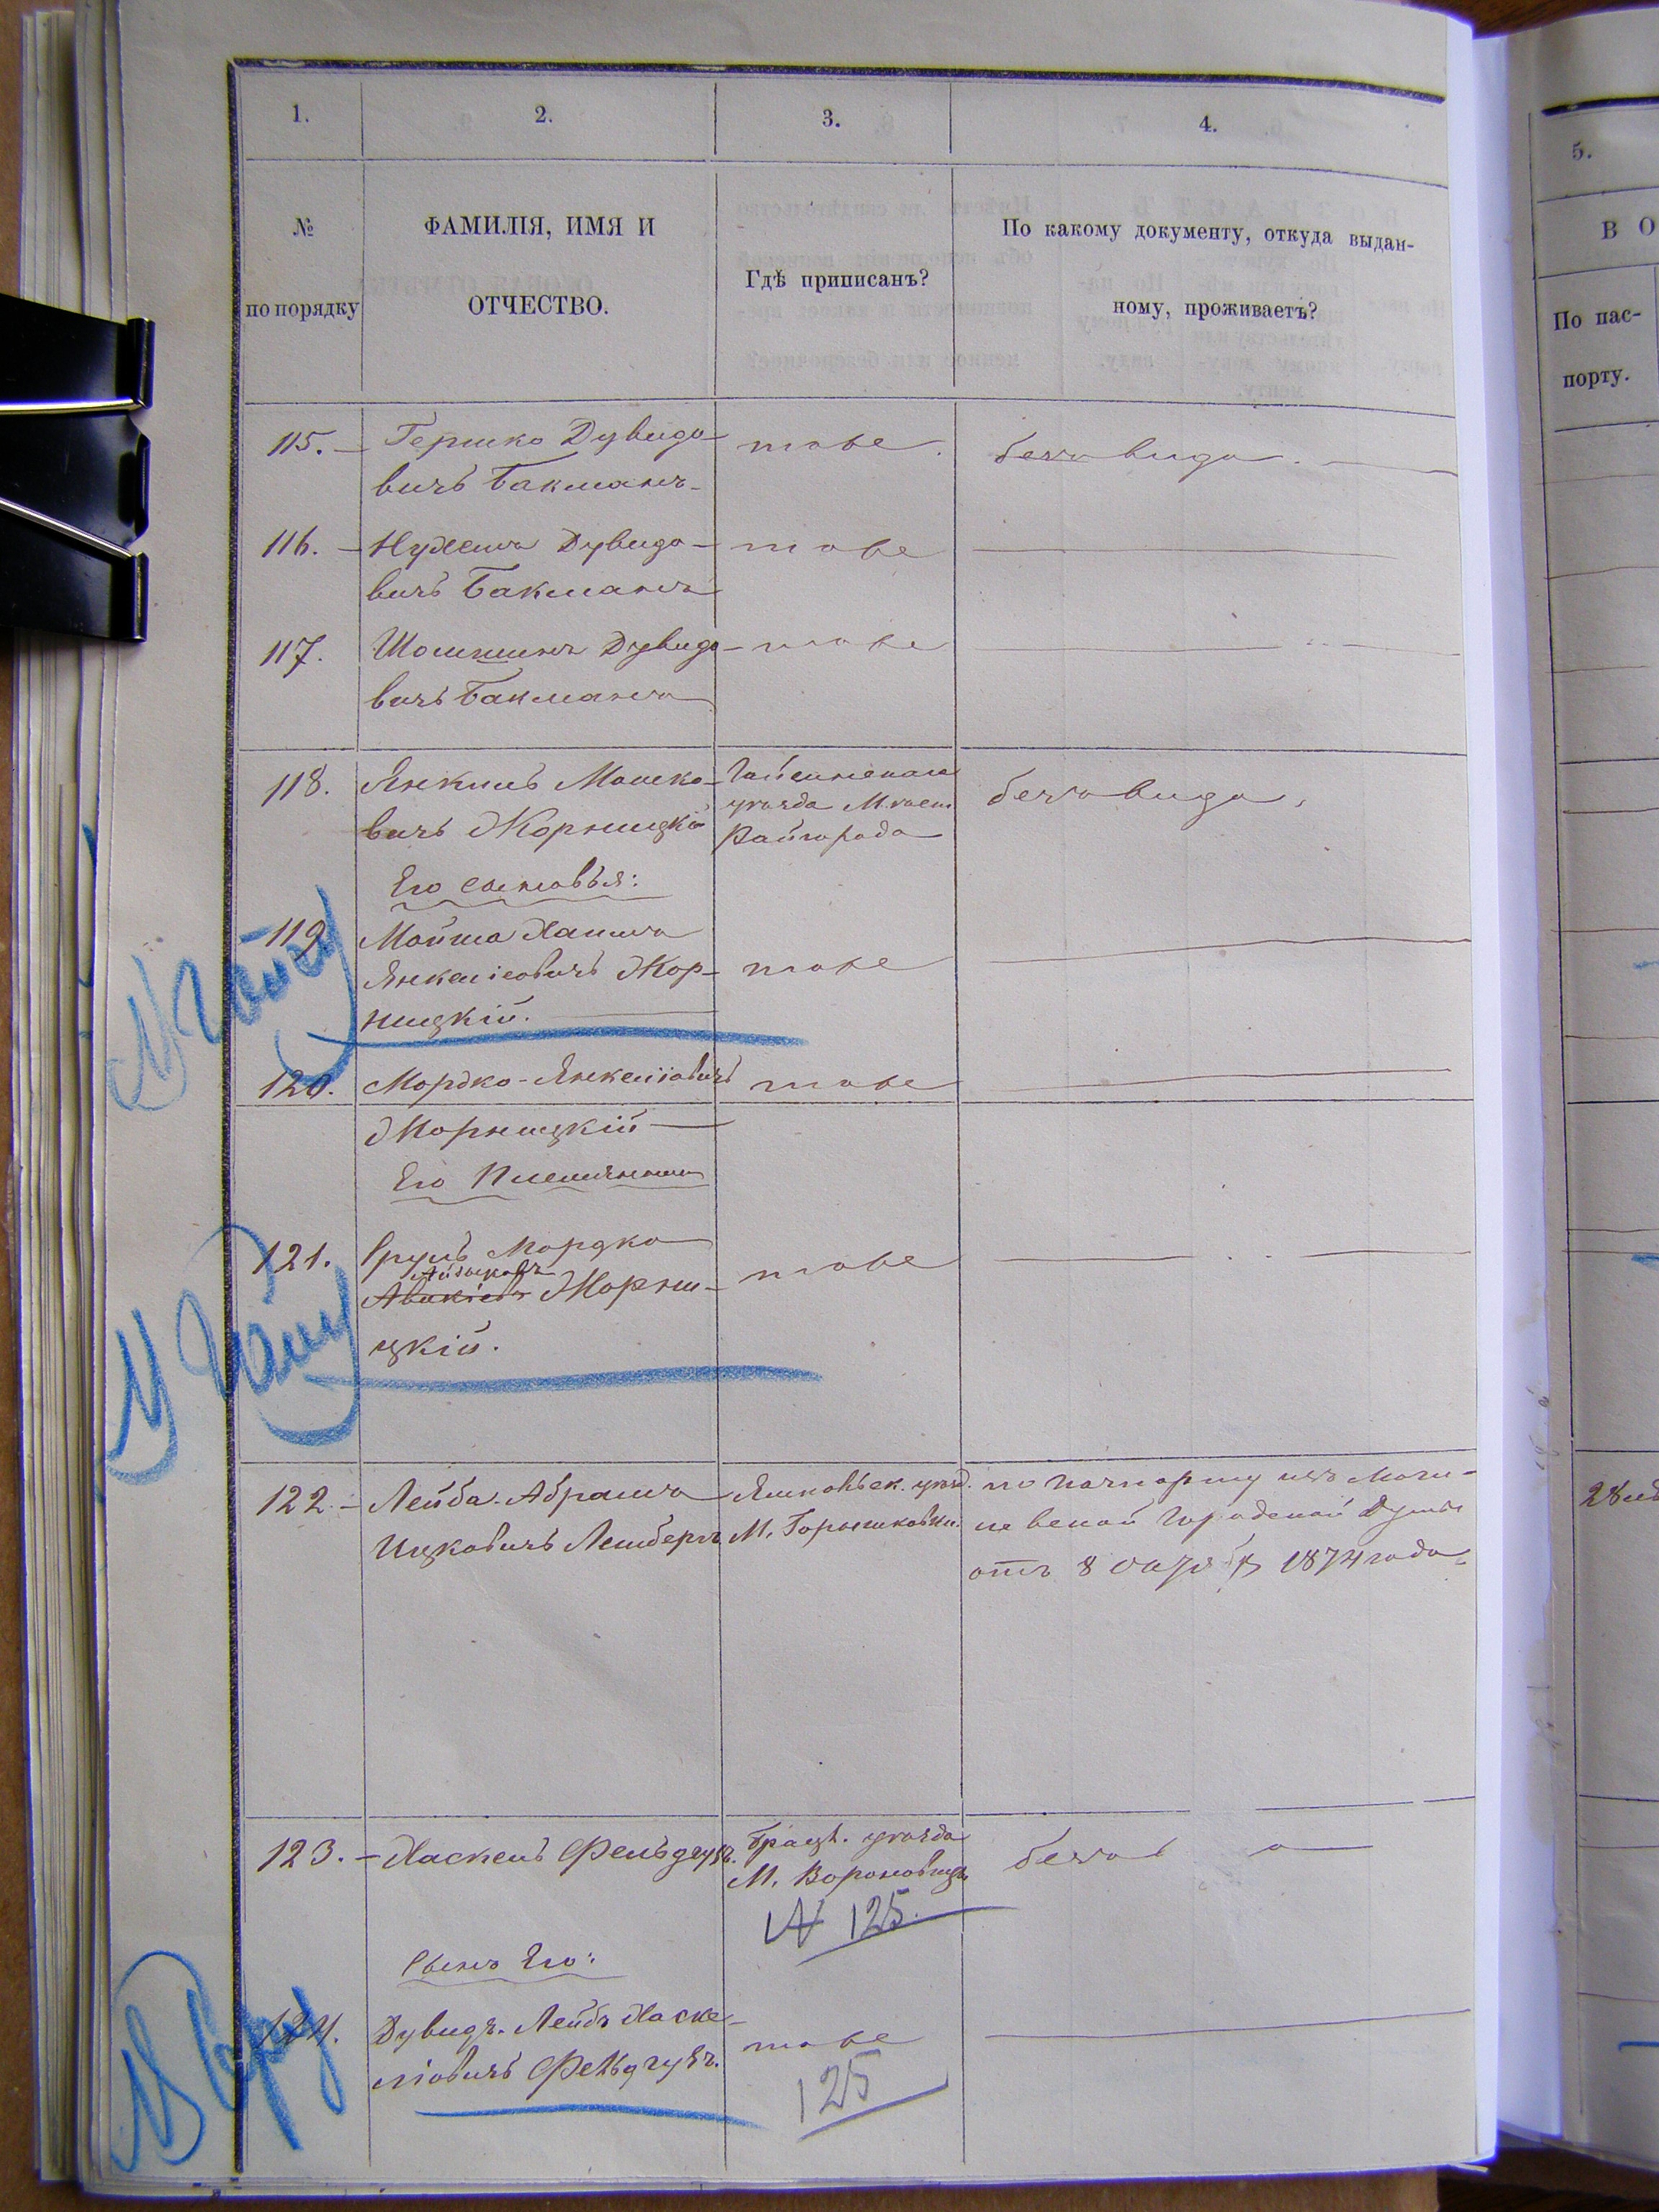 1.
2.
3.
4.
№
по порядку
ФАМИЛІЯ, ИМЯ И
ОТЧЕСТВО.
Гдѣ приписанъ?
По какому документу, откуда выдан-
ному, проживаетъ?
115. — Гершко Дувидо-
вичъ Бакманъ
тоже.
безъ вида.
116. — Нухимъ Дувидо-
вичъ Бакманъ
тоже
117. Дувидо-
вичъ Бакманъ
тоже
118. Янкель Мошко-
вичъ Жорницкій
Гайсинскаго
уѣзда М.
Райгорода
безъ вида.
Его сыновья:
119. Мойша Хаимъ
Янкеліовичъ Жор-
ницкій.
тоже
120. Мордко-Янкеліовичъ
Жорницкій
тоже
Его Племянники
121. Сруль Мордко
Жорни-
цкій.
тоже
122. — Лейба-Абрамъ
Ицковичъ Лемберг
Ямпольск. уѣзд.
М.
по паспорту изъ Моги-
левской Городской Думы
отъ 8 1874 года
123. — Хаскель Фельдгуз.
Брацл. уѣзда
М. Вороновицъ
безъ
№ 125.
Сынъ Его:
124. Дувидъ-Лейбъ Хаске-
ліовичъ Фельдгузъ.
тоже
125
5.
В О
По пас-
порту.
28